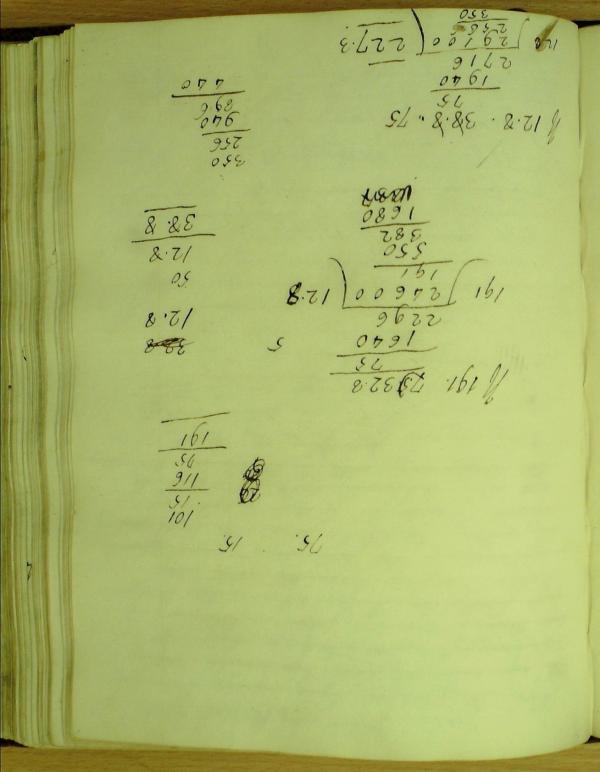 75. 15.
101
15
116
75
191
If 191. 75. 32.8
75
1640
2296
191 ) 24600 ( 12.8
191
550
382
1680
5
12.8
50
12.8
38.8
If 12.8. 38.8. 75
75
1940
2716
12.8 ) 29100 ( 227.3
256
350
350
256
940
896
440